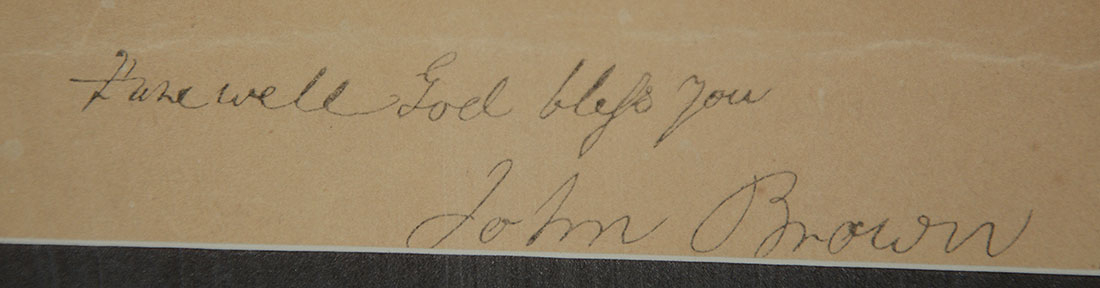 Farewell God bleſs you
John Brown